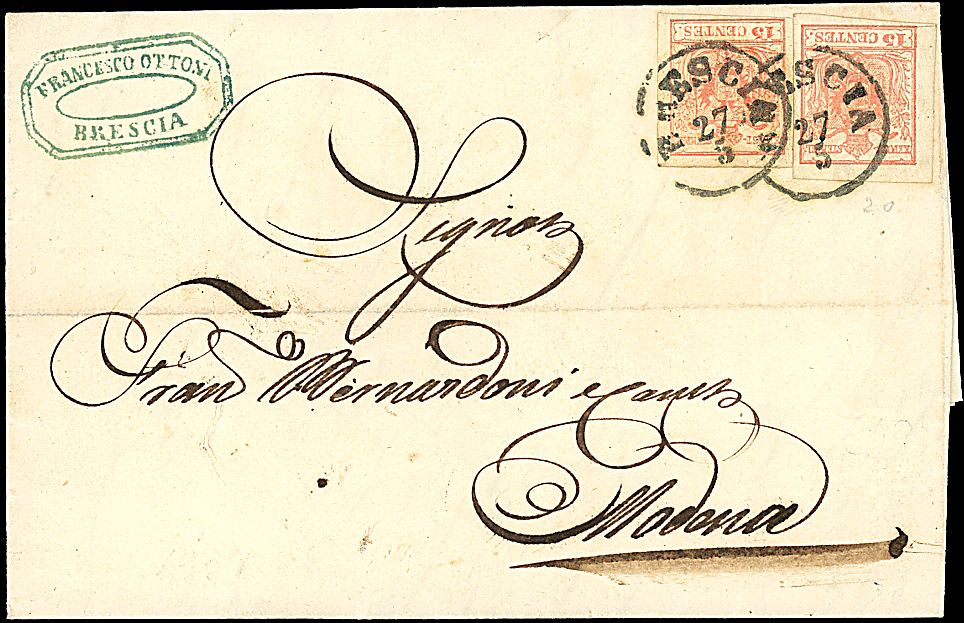 FRANCESCO OTTONI
BRESCIA
15 CENTES.
15 CENTES.
BRESCIA
27
5
ESCIA
27
5
20
Signori
Fran Bernardoni e
Modena